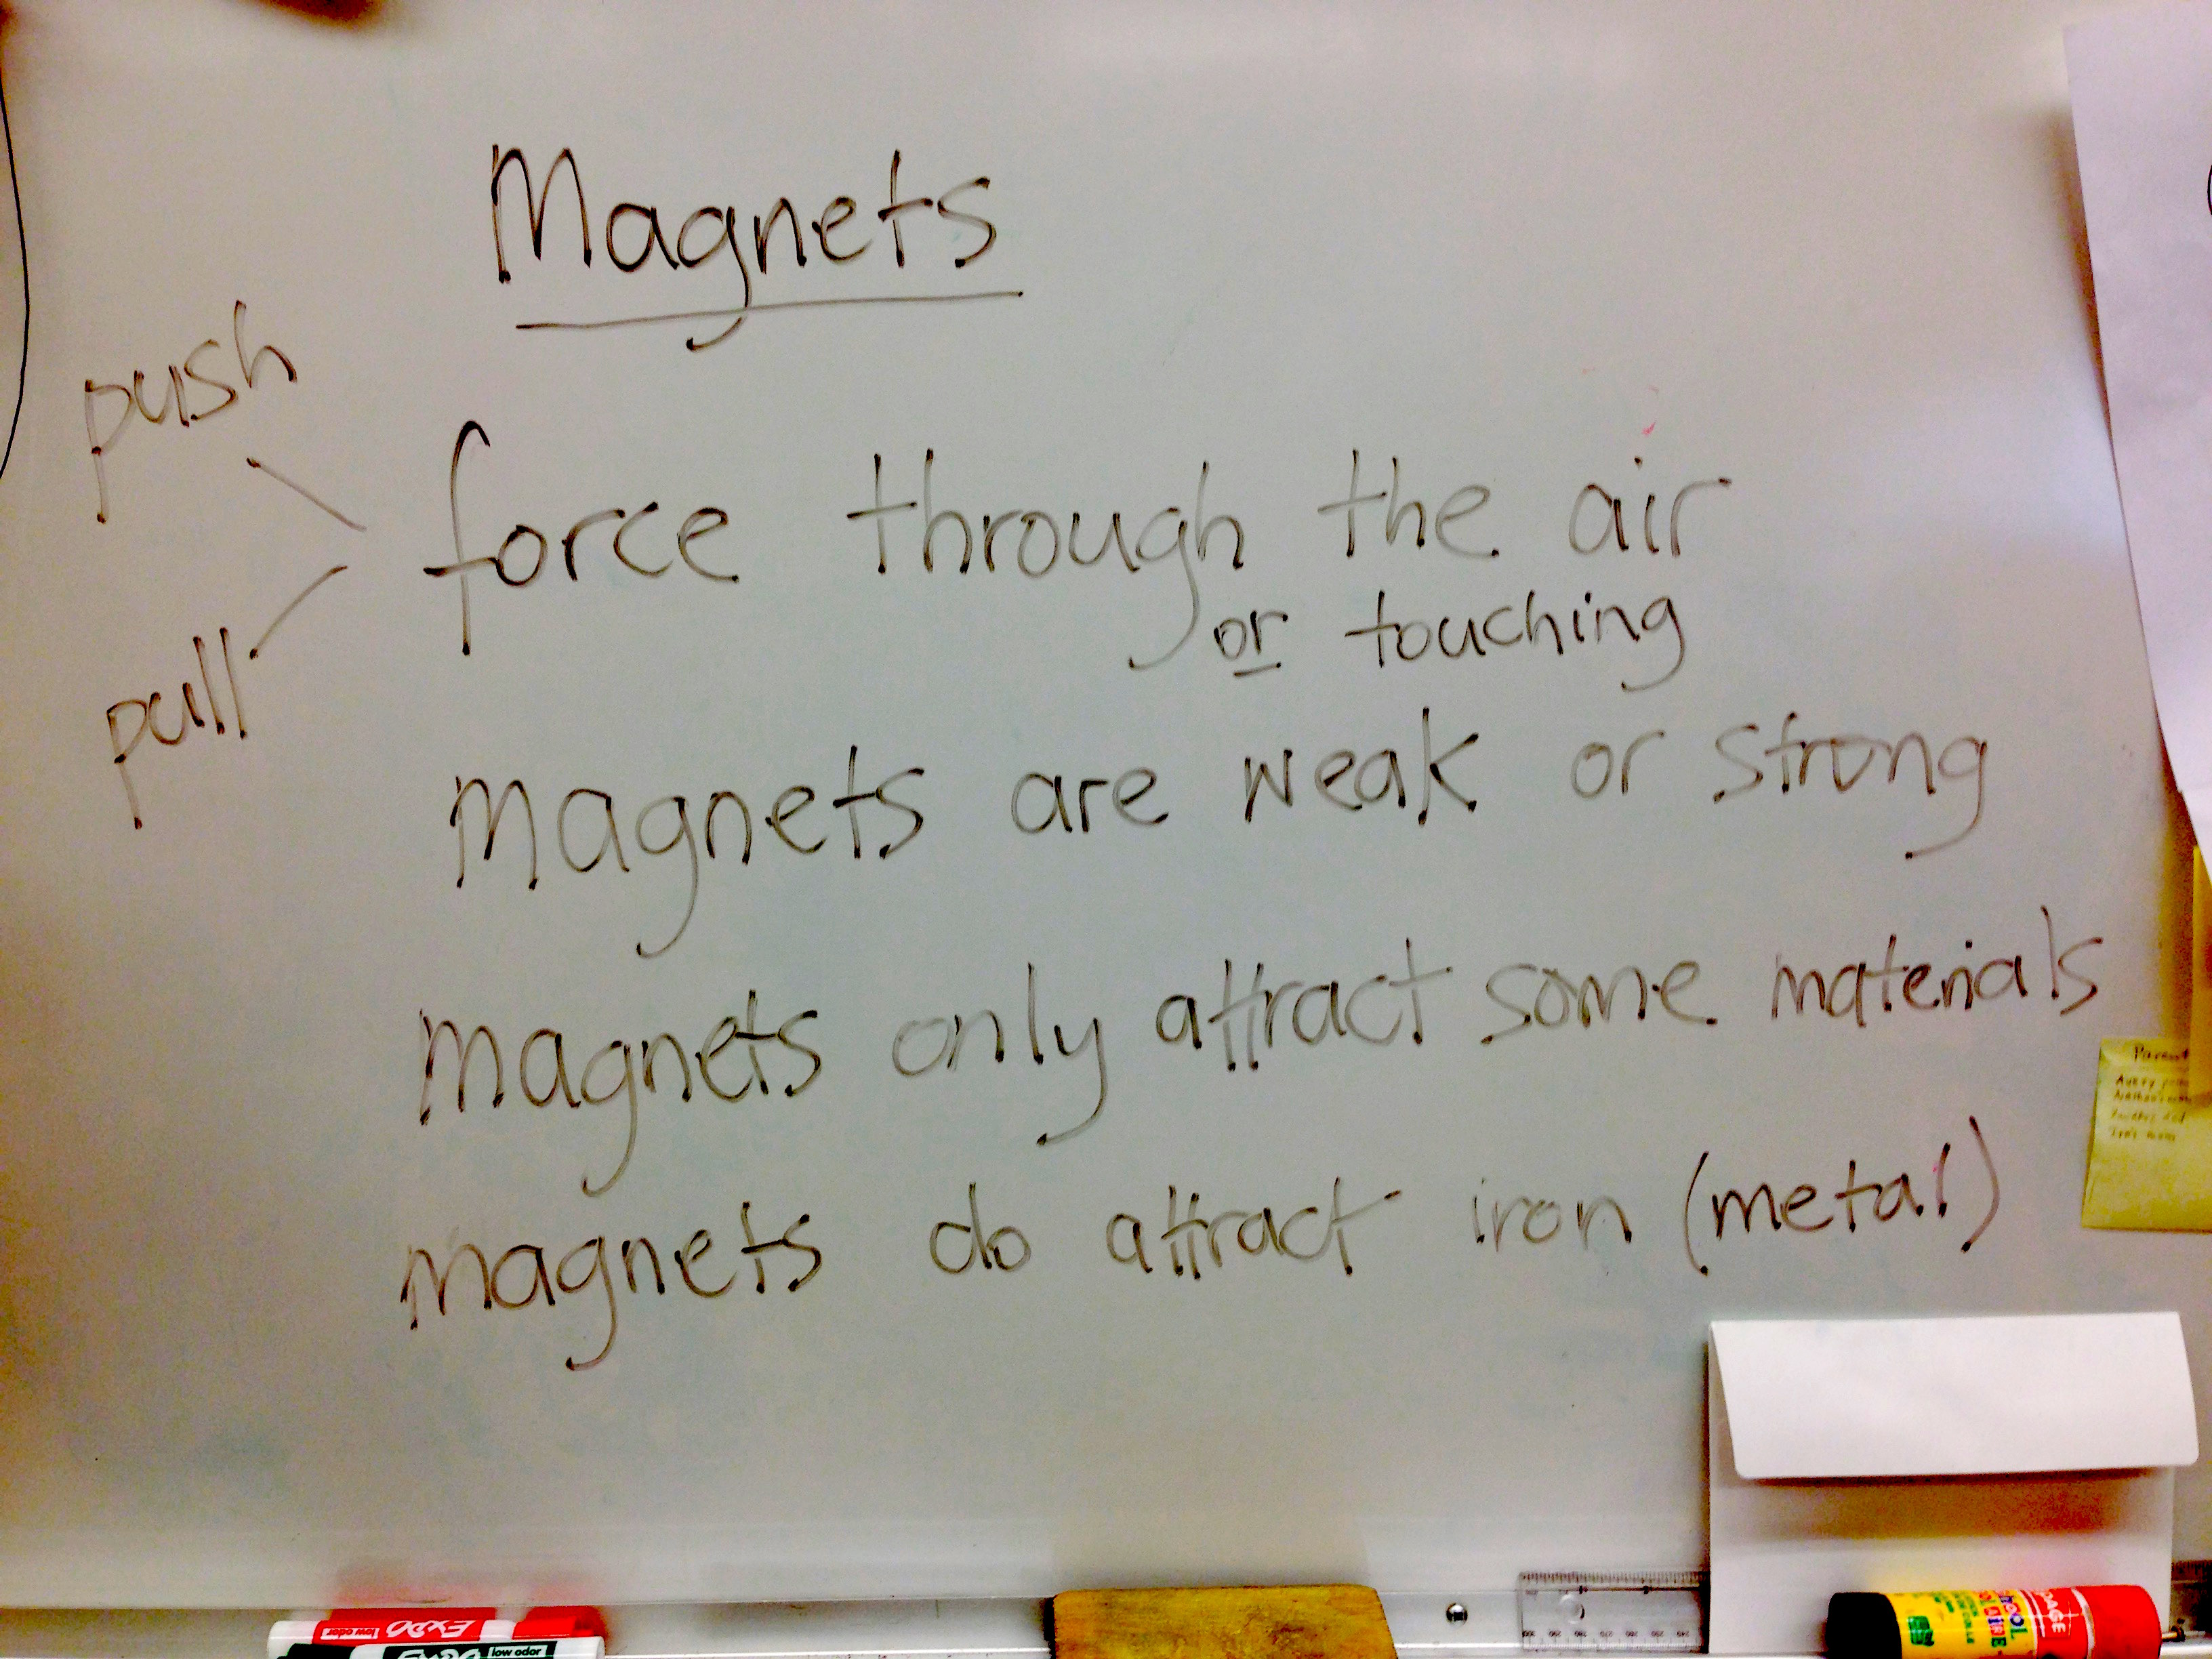 Magnets
push
pull
force through the air
or touching
Magnets are weak or strong
Magnets only attract some materials
magnets do attract iron (metal)
Parent
EXPO
low odor
low odor